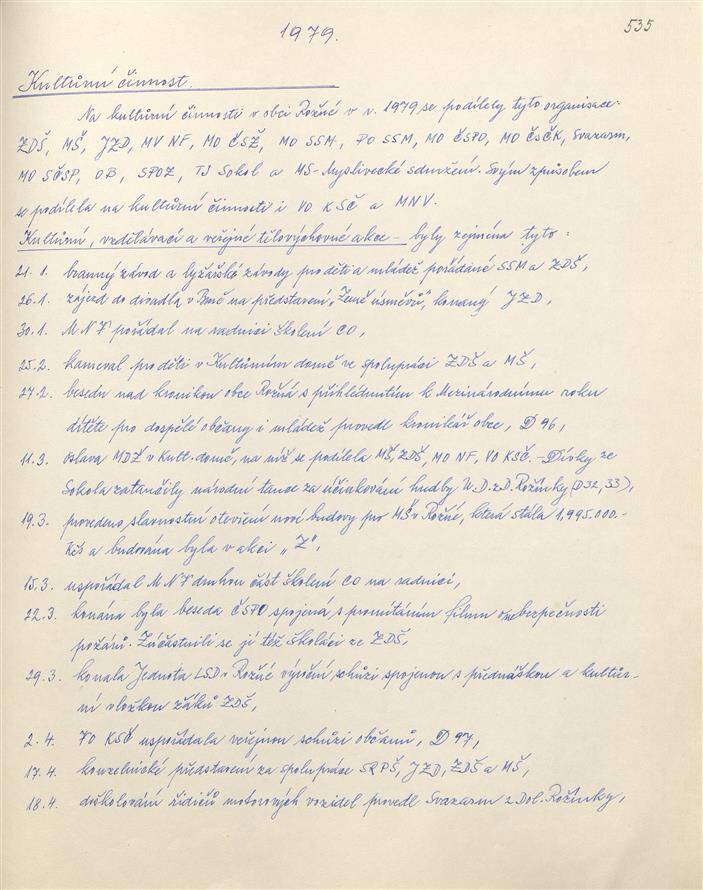 1979.
535
Kulturní činnost.
Na kulturní činnosti v obci Rožné v r. 1979 se podílely tyto organisace:
ZDŠ, MŠ, JZD, MV NF, MO ČSŽ, MO SSM, PO SSM, MO ČSPO, MO ČSČK, Svazarm,
MO SČSP, OB, SPOZ, TJ Sokol a MS-Myslivecké sdružení. Svým způsobem
se podílela na kulturní činnosti i VO KSČ a MNV.
Kulturní, vzdělávací a veřejné tělovýchovné akce - byly zejména tyto:
21. 1. branný závod a lyžařské závody pro děti a mládež pořádané SSM a ZDŠ,
26. 1. zájezd do divadla v Brně na představení „Země úsměvů", konaný JZD,
30. 1. MNV pořádal na radnici školení CO,
25. 2. karneval pro děti v Kulturním domě ve spolupráci ZDŠ a MŠ,
27. 2. besedu nad kronikou obce Rožná s přihlédnutím k Mezinárodnímu roku
dítěte pro dospělé občany i mládež provedl kronikář obce, D 96,
11. 3. oslava MDŽ v Kult. domě, na níž se podílela MŠ, ZDŠ, MO NF, VO KSČ. - Dívky ze
Sokola zatančily národní tance za účinkování hudby U. D. z D. Rožínky (D 32, 33),
19. 3. provedeno slavnostní otevření nové budovy pro MŠ v Rožné, která stála 1,995.000.-
Kčs a budována byla v akci „Z",
15. 3. uspořádal MNV druhou část školení CO na radnici,
22. 3. konána byla beseda ČSPO spojená s promítáním filmu o nebezpečnosti
požárů. Zúčastnili se jí též školáci ze ZDŠ,
29. 3. konala Jednota LSD v Rožné výroční schůzi spojenou s přednáškou a kultur-
ní vložkou žáků ZDŠ,
2. 4. VO KSČ uspořádala veřejnou schůzi občanů, D 97,
17. 4. kouzelnické představení za spolupráce SRPŠ, JZD, ZDŠ a MŠ,
18. 4. doškolování řidičů motorových vozidel provedl Svazarm z Dol. Rožínky,